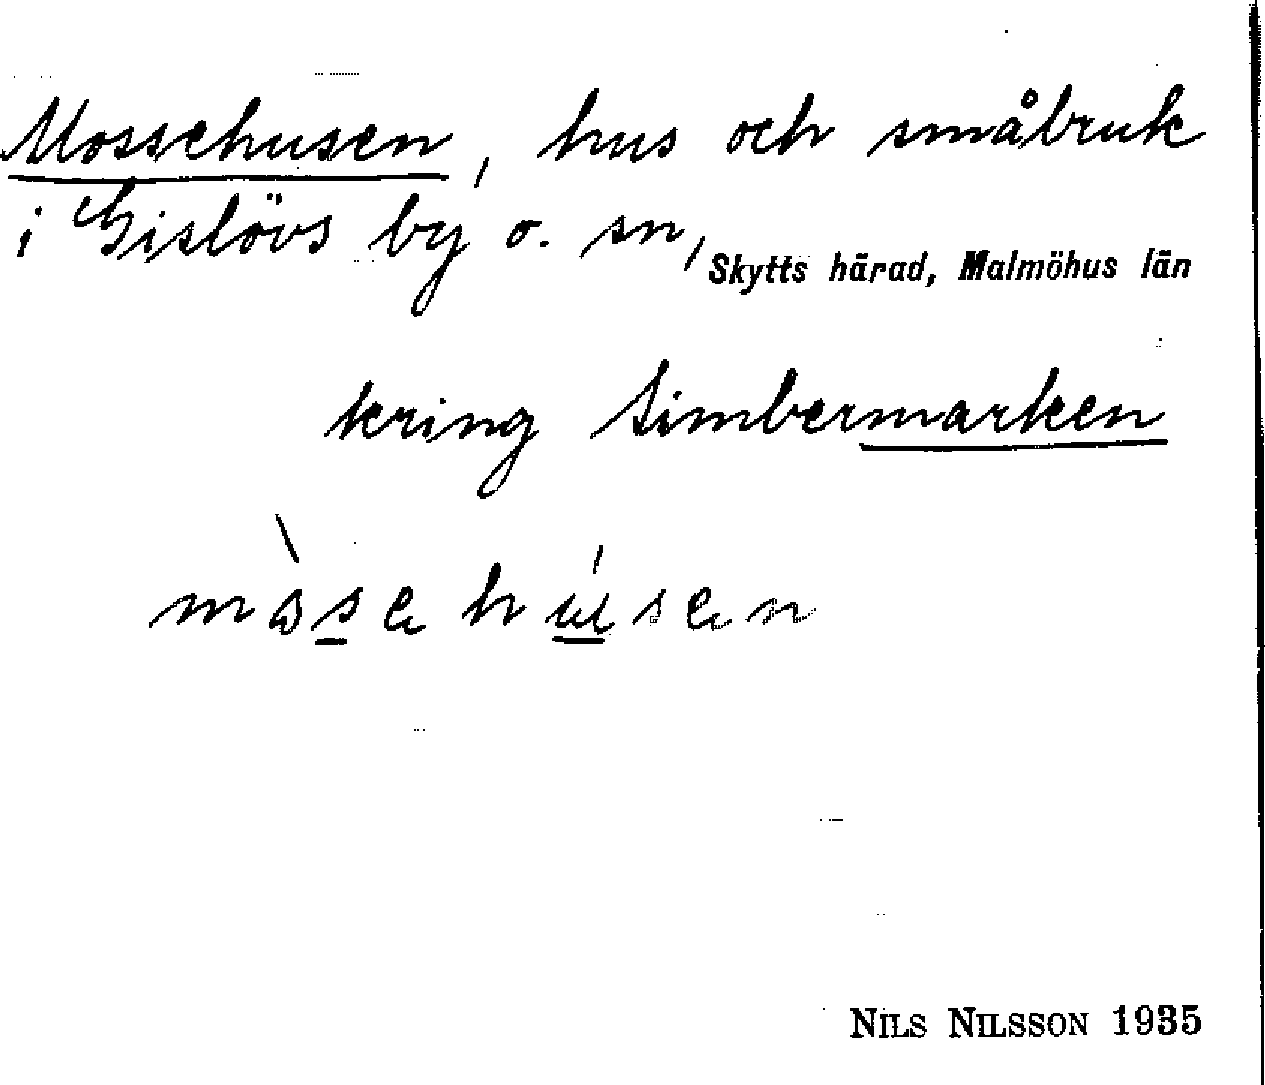 Mossehusen, hus och småbruk
i Gislövs by o. sn,
Skytts härad, Malmöhus län
kring Simbermarken
NILS NILSSON 1935